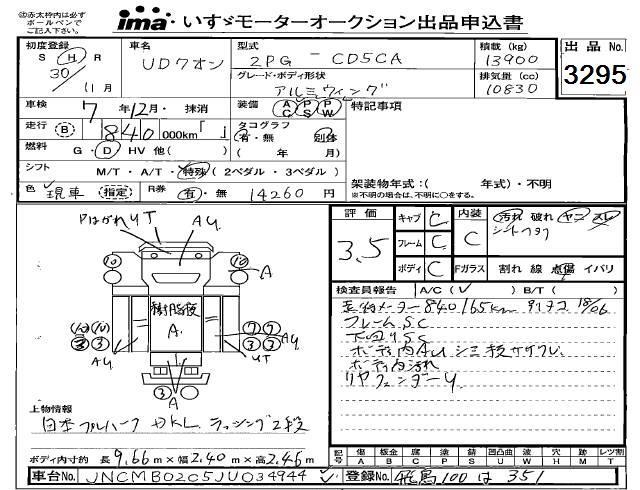 ㊟赤太枠内は必ず
ボールペンで
ご記入下さい。
ima・いすゞモーターオークション出品申込書
初度登録
S H R
30/11月
車名
UDクオン
型式
2PG - CD5CA
積載(kg)
13900
グレード・ボディ形状
アルミウィング
排気量(cc)
10830
出品No.
3295
車検 7年12月・抹消
装備 AC PS PW
特記事項
走行 B 840 000km「 」
タコグラフ
有・無 別体
燃料 G・D・HV 他( )
( 年 月)
シフト M/T・A/T・特殊(2ペダル・3ペダル)
架装物年式:( 年式)・不明
※不明の場合は、不明に○をする。
色 現車 指定
R券 有・無 14260円
PはがれUT
AU
A
10
10
A
A
7 7
3 3
AU
UT
3
A
評価
3.5
キャブ C
フレーム C
ボディ C
内装 C
汚れ 破れ ヤニ スレ
Fガラス 割れ 線 点傷 イバリ
検査員報告 A/C( ) B/T( )
840165km 18/06
フレームSC
下回りSC
ボディ内AU
ボディ内汚れ
リヤフェンダーU
上物情報
日本フルハーフ ラッシング2段
ボディ内寸約 長9.66m×巾2.40m×高2.46m
記号 傷A 板金B 腐C 塗P サビS 凹凸曲U 凹V 穴H 跡M レツ割T
車台No. JNCMB02C5JU034944
登録No. 飛鳥100は351